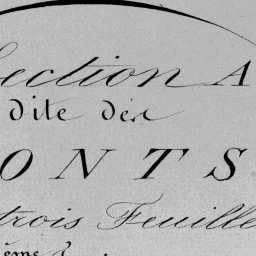 Section A
dite des
ONTS
trois Feuille
ème